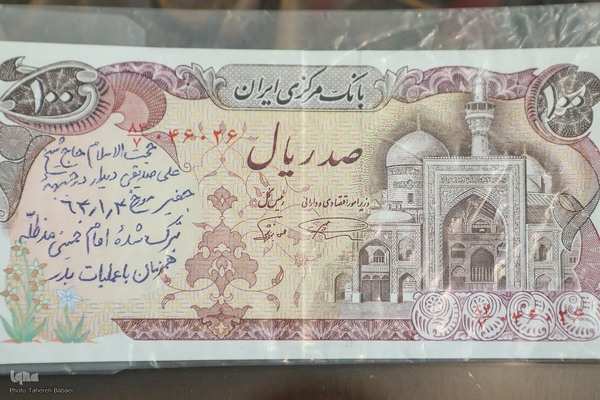 بانک مرکزی ایران
۱۰۰
۱۰۰
۸۳/۷ ۰۴۶۰۲۶
صد ریال
حجت الاسلام حاج شیخ
علی صدیقی دیدار در جبههٔ
جفیر مورخ ۶۴/۱/۴
تبرک شده امام خمینی مدظله
همزمان با عملیات بدر
وزیر امور اقتصادی و دارائی
رئیس کل
iqna
Photo: Tahereh Babaei